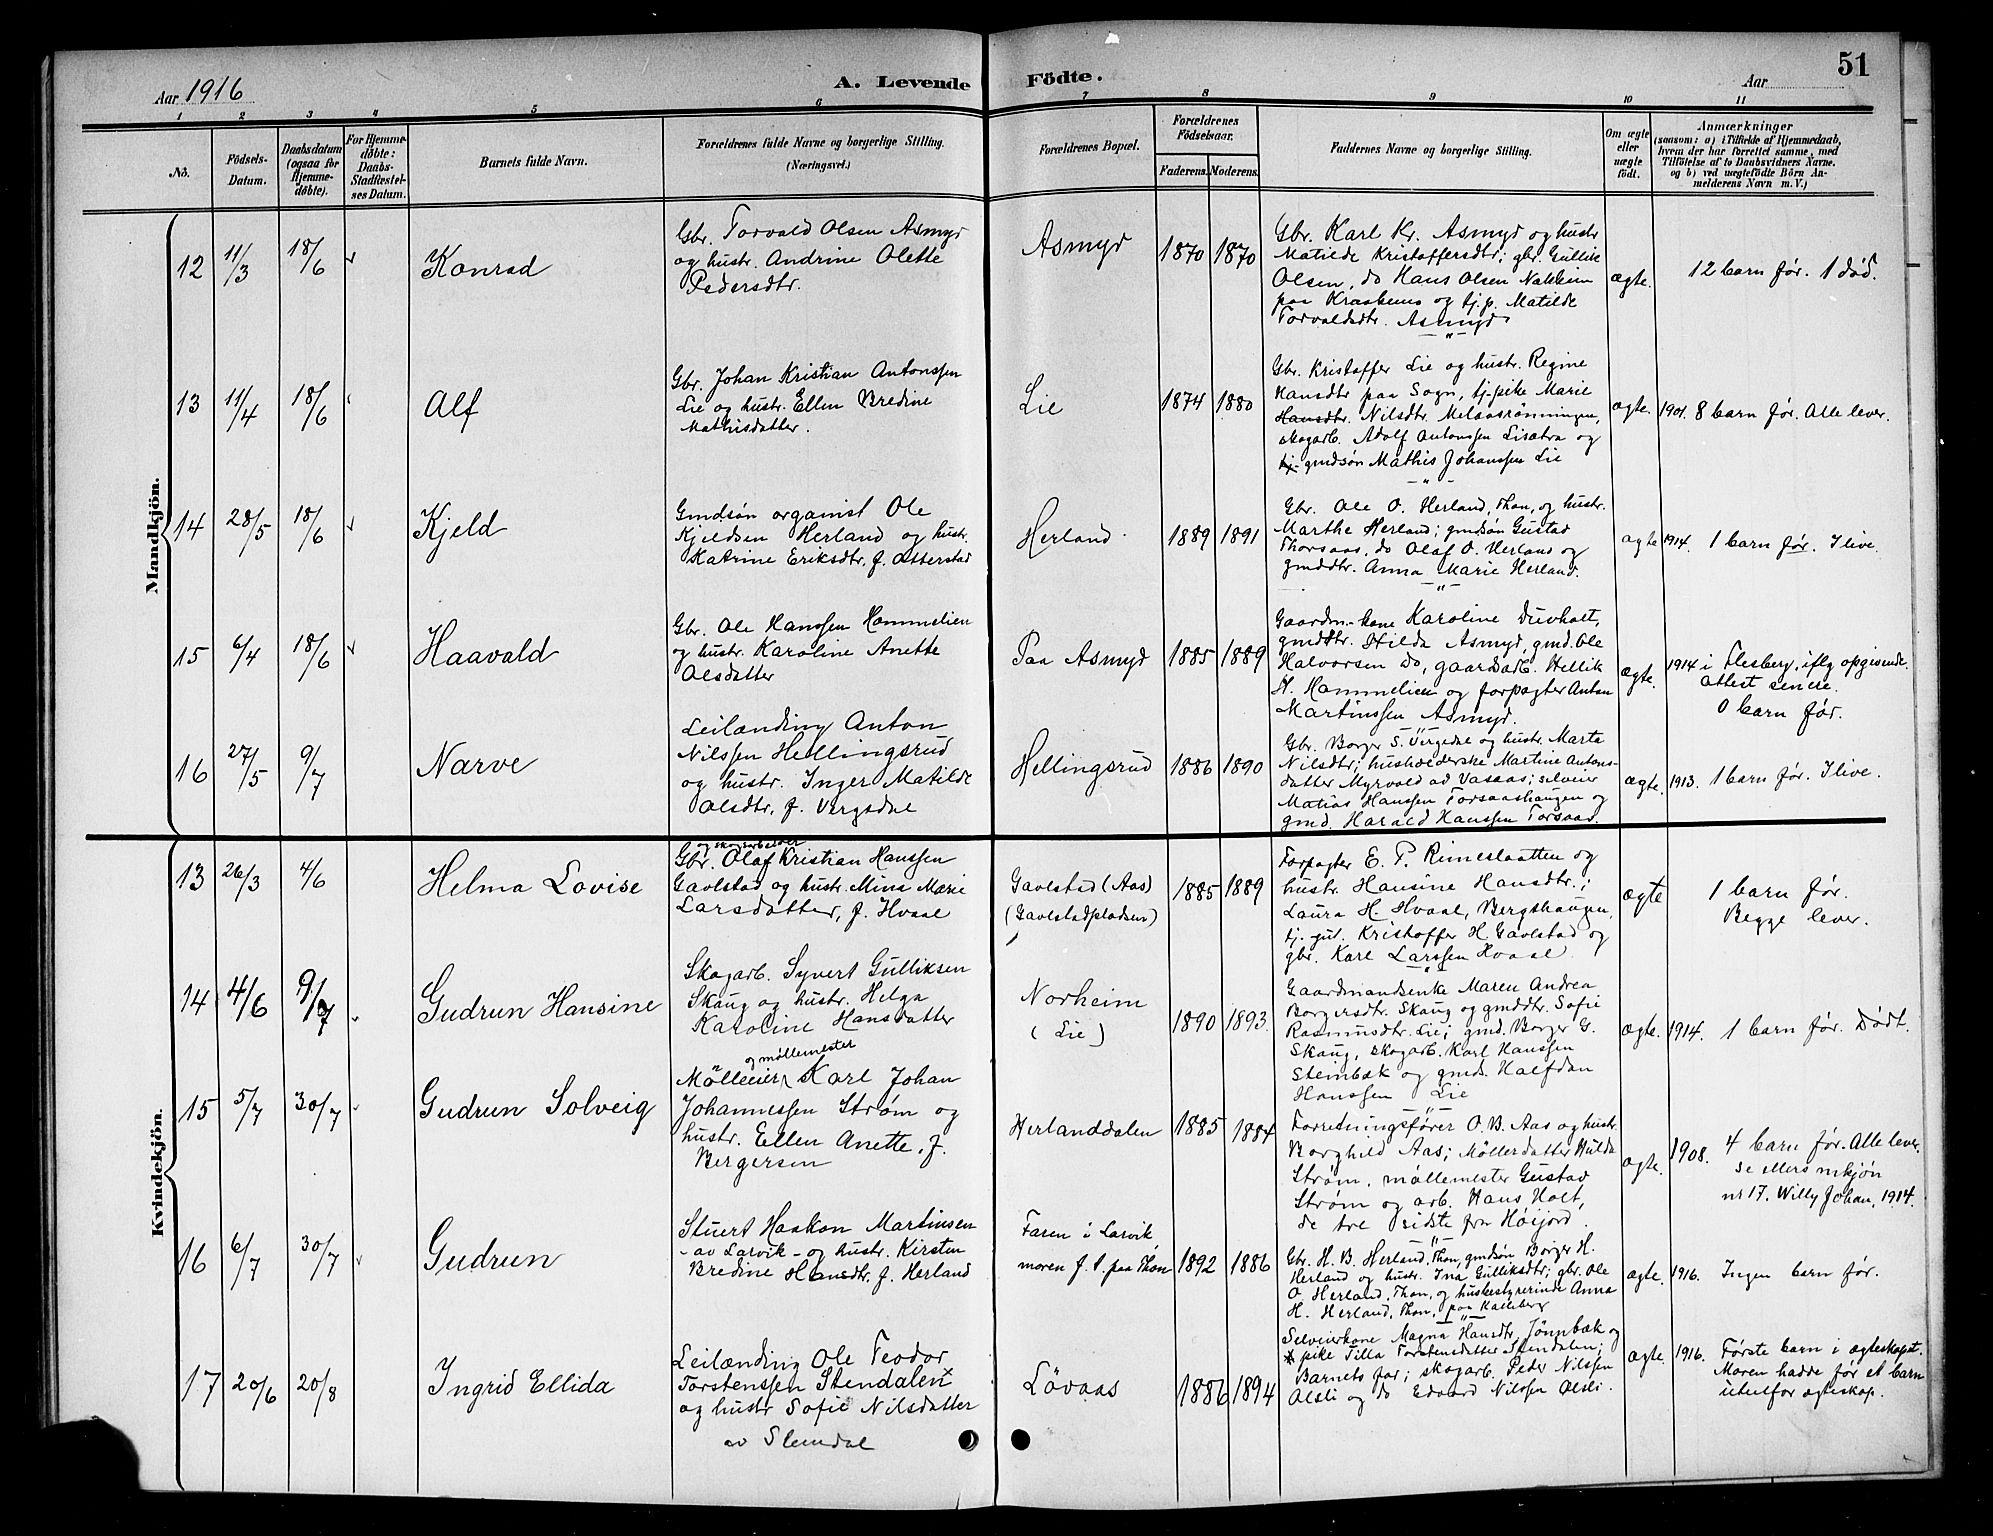 51
Aar 1916
A. Levende Födte.
Aar
1 2 3 4 5 6 7 8 9 10 11
No.
Födsels-Datum.
Daabsdatum (ogsaa for Hjemmedöbte).
For Hjemmedöbte: Daabs-Stadfæstelses Datum.
Barnets fulde Navn.
Forældrenes fulde Navne og borgerlige Stilling. (Næringsvei.)
Forældrenes Bopæl.
Forældrenes Födselsaar.
Faderens. Moderens.
Faddernes Navne og borgerlige Stilling.
Om ægte eller uægte födt.
Anmærkninger
(saasom: a) i Tilfælde af Hjemmedaab,
hvem der har forrettet samme, med
Tilföielse af to Daabsvidners Navne.
og b) ved uægtefödte Börn An-
melderens Navn m. V.)
Mandkjön.
12 11/3 18/6 Konrad
Gbr. Torvald Olsen Asmyr
og hustr. Andrine Olette
Pedersdtr.
Asmyr 1870 1870
Gbr. Karl Kr. Asmyr og hustr
Matilde Kristoffersdtr; gbr. Gullik
Olsen, do Hans Olsen
paa og tj.p. Matilde
Torvaldsdtr. Asmyr
ægte. 12 barn før. 1 død.
13 11/4 18/6 Alf
Gbr. Johan Kristian Antonssen
Lie og hustr. Ellen Bredine
Mathisdatter.
Lie 1874 1880
Gbr. Kristoffer Lie og hustr. Regine
Hansdtr paa Sogn, tj.pike Marie
Hansdtr. Nilsdtr. Melaasrønningen,
skogarb. Adolf Antonssen Lisætra og
tj. gmdsøn Mathis Johanssen Lie
ægte. 1901. 8 barn før. Alle lever.
14 28/5 18/6 Kjeld
Gmdsøn organist Ole
Kjeldsen Herland og hustr.
Katrine Eriksdtr. f. Atterstad
Herland 1889 1891
Gbr. Ole O. Herland, Thon, og hustr.
Marthe Herland; gmdsøn Gustad
Thorsaas, do Olaf O. Herland og
gmddtr. Anna Marie Herland.
ægte 1914. 1 barn før. I live.
15 6/4 18/6 Haavald
Gbr. Ole Hanssen Hammelien
og hustr. Karoline Anette
Olsdatter
Paa Asmyr 1885 1889
Gaardm.-kone Karoline Duvholt,
gmddtr. Hilda Asmyr, gmd. Ole
Halvorsen do, gaardarb. Hellik
H. Hammelien og forpagter Anton
Martinssen Asmyr.
ægte. 1914 i Flesberg, iflg opgivende.
Attest senere.
0 barn før.
16 27/5 9/7 Narve
Leilænding Anton
Nilssen Hellingsrud
og hustr. Inger Matilde
Olsdtr, f. Vergedal
Hellingsrud 1886 1890
Gbr. Borger S. Vergedal og hustr. Marta
Nilsdtr; husholderske Martine Antons-
datter Myrvold ad Vasaas; selveier
Matias Hanssen Torsaashaugen og
gmd. Harald Hanssen Torsaas.
ægte. 1913. 1 barn før. I live.
Kvindekjön.
13 26/3 4/6 Helma Lovise
og skogarbeider
Gbr. Olaf Kristian Hanssen
Gavelstad og hustr. Mina Marie
Larsdatter, f. Hvaal
Gavelstad (Aas)
(Gavelstadpladsen)
1885 1889
Forpagter E. P. Rimeslaatten og
hustr. Hansine Hansdtr.;
Laura H. Hvaal, Bergshaugen,
tj. gut. Kristoffer H. Gavelstad og
gbr. Karl Larssen Hvaal.
ægte 1 barn før.
Begge lever.
14 4/6 9/7 Gudrun Hansine
Skogarb. Syvert Gulliksen
Skaug og hustr. Helga
Karoline Hansdatter
Norheim
(Lie)
1890 1893.
Gaardmandsenke Maren Andrea
Borgersdtr. Skaug og gmddtr. Sofie
Rasmusdtr. Lie; gmd. Borger G.
Skaug, skogarb. Karl Hanssen
Steinbæk og gmds. Halfdan
Hanssen Lie
ægte. 1914. 1 barn før. Dødt.
15 5/7 30/7 Gudrun Solveig
og møllemester
Mølleeier Karl Johan
Johannessen Strøm og
hustr. Ellen Anette, f.
Bergersen
Herlanddalen 1885 1884
Forretningsfører O. B. Aas og hustr.
Borghild Aas; Møllerdatter Hulda
Strøm, møllemester Gustad
Strøm og arb. Hans Holt,
de tre sidste fra Høijord.
ægte. 1908. 4 barn før. Alle lever.
Se ellers mkjøn
nr 17. Willy Johan, 1914.
16 6/7 30/7 Gudrun
Stuert Haakon Martinsen
- av Larvik - og hustr. Kirsten
Bredine Hansdtr. f. Herland
Faren i Larvik
moren f. t. paa Thon
1892 1886
Gbr. H. B. Herland, Thon, gmdsøn Borger H.
Herland og hustr. Ina Gulliksdtr; gbr. Ole
O. Herland, Thon, og husbestyrerinde Anna
H. Herland, Thon, paa
ægte. 1916. Ingen barn før.
17 20/6 20/8 Ingrid Ellida
Leilænding Ole Teodor
Torstenssen Stendalen
og hustr Sofie Nilsdatter
av Slemdal
Lövaas 1886 1894
Selveierkone Magna Hansdtr, Jönnbæk og
pike Tilla Torstensdatter Stendalen;
Barnets far; skogarb. Peder Nilssen
Olsli og do Edvard Nilssen Olsli.
ægte. 1916. Første barn i ægteskapet.
Moren hadde før et barn
utenfor ægteskap.